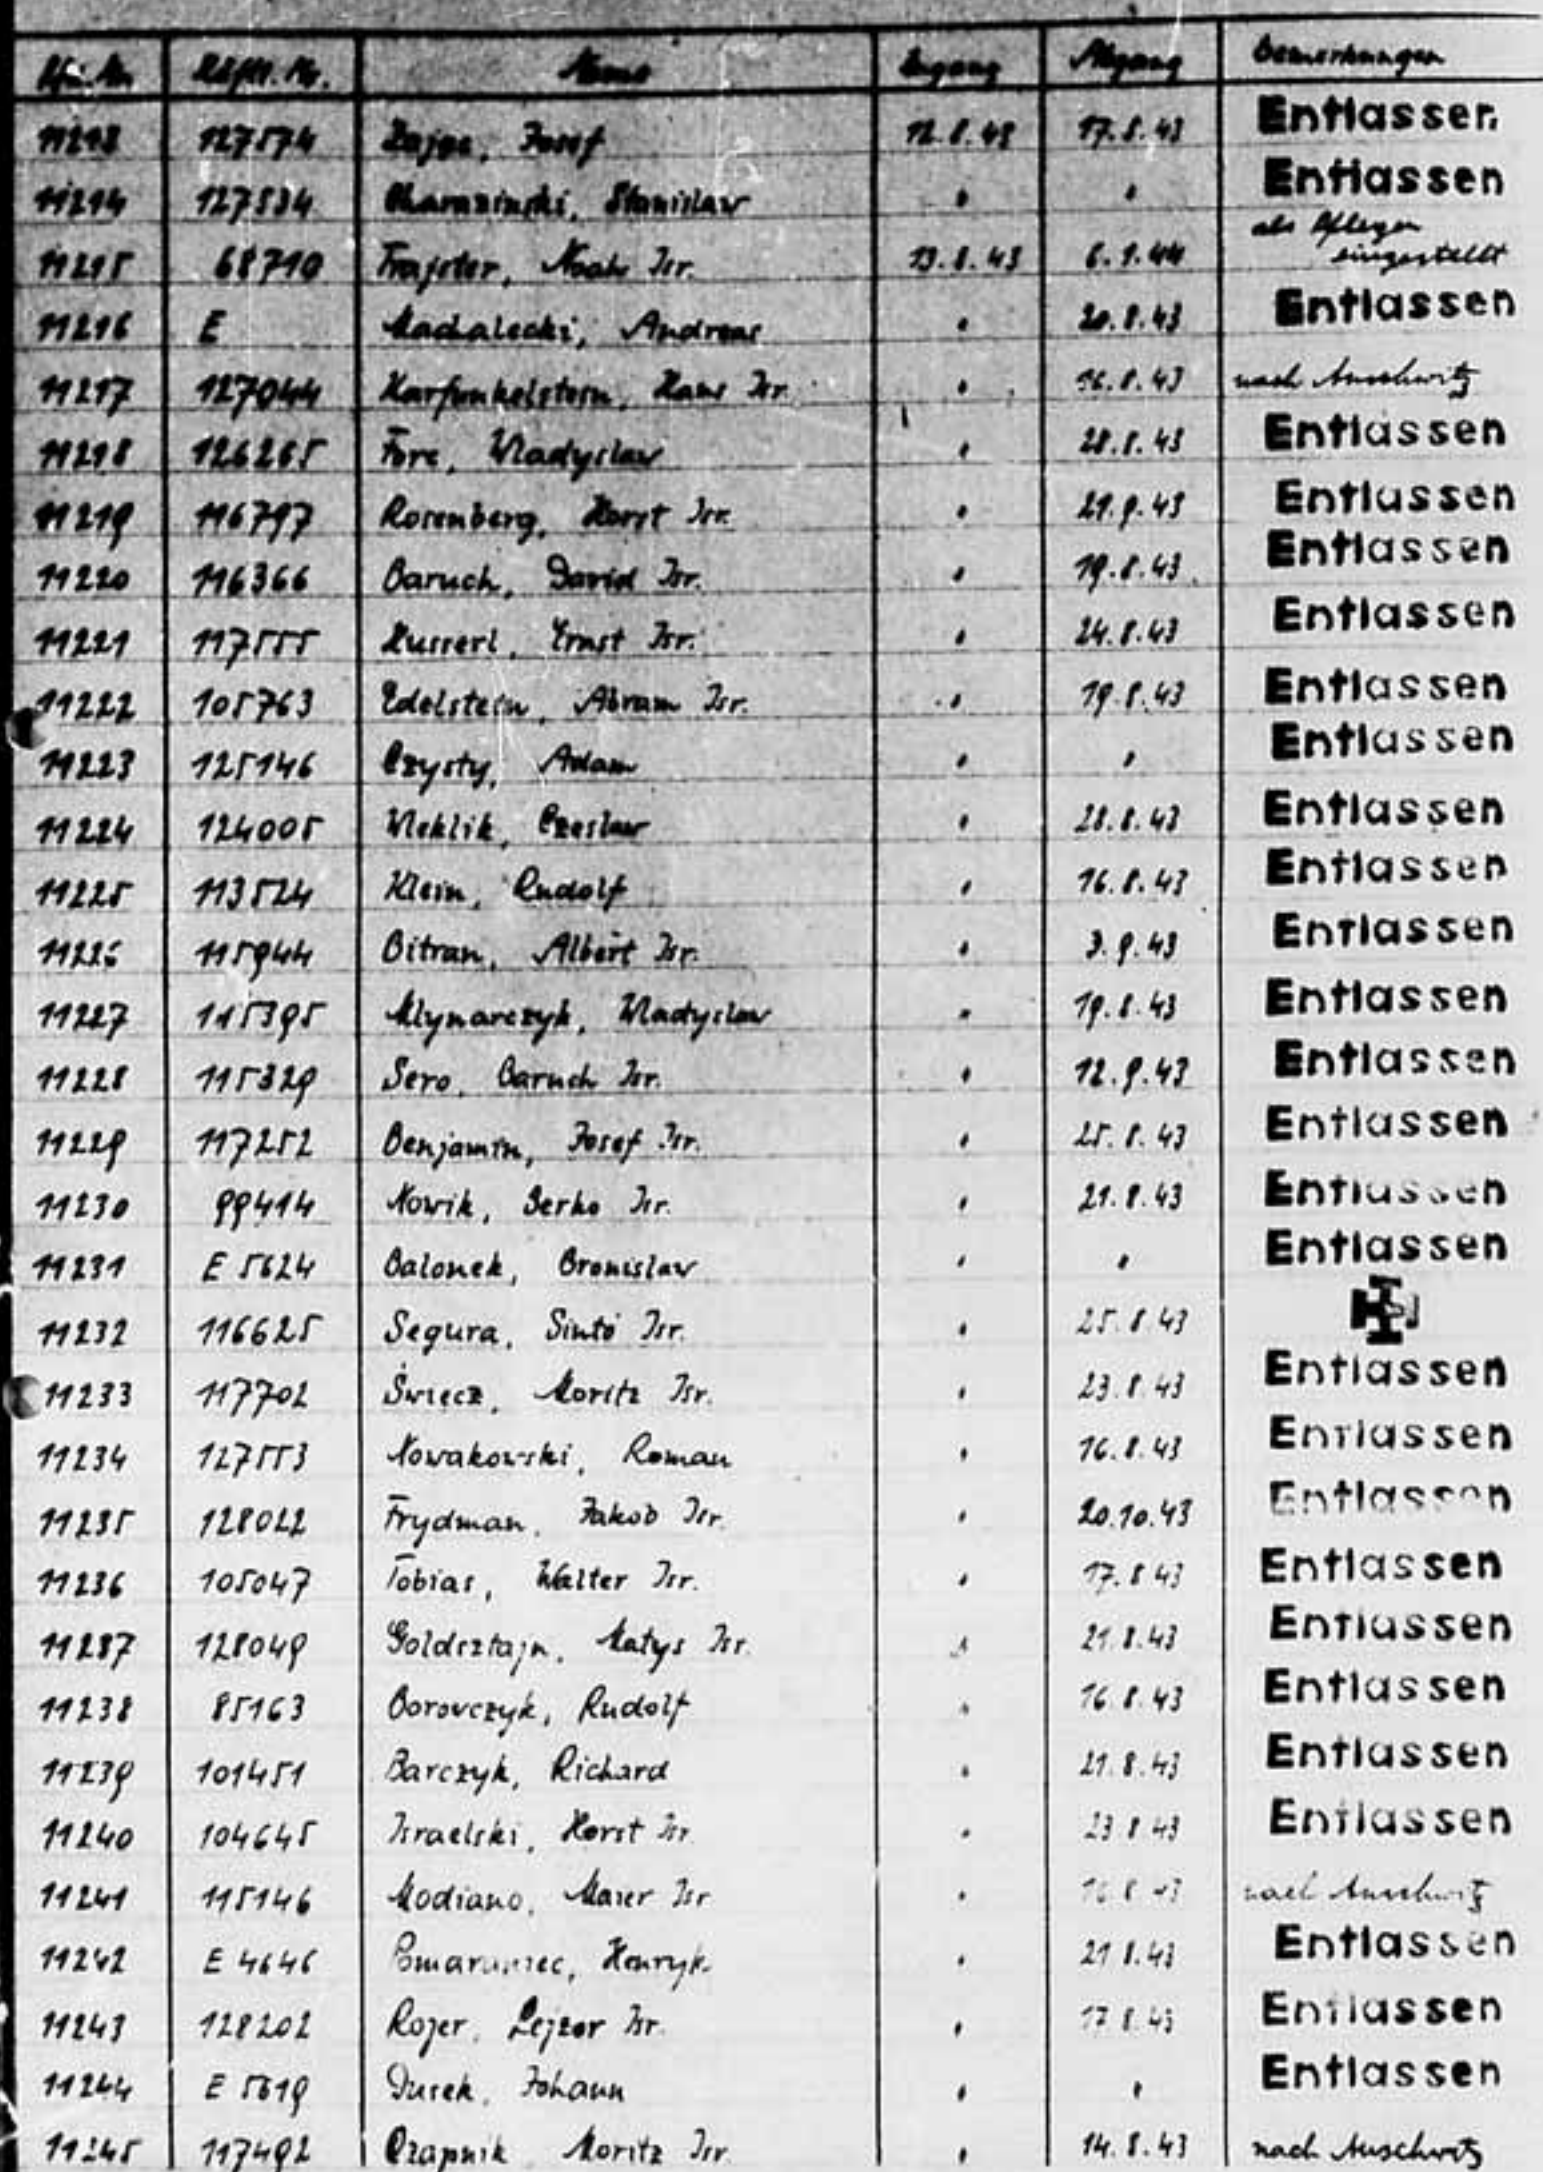 Lfd. Nr. Häftl. Nr. Name Zugang Abgang Bemerkungen
11213 127574 Zajac, Josef 12.8.43 17.8.43 Entlassen
11214 127534 Stanislaw " " Entlassen
11215 68710 Frajster, Noah Isr. 13.8.43 6.1.44 als Pfleger
eingestellt
11216 E Machalecki, Andreas " 20.8.43 Entlassen
11217 127044 Karfunkelstein, Hans Isr. " 16.8.43 nach Auschwitz
11218 126265 Wladyslaw " 28.8.43 Entlassen
11219 116797 Rosenberg, Horst Isr. " 21.9.43 Entlassen
11220 116366 Baruch, David Isr. " 19.8.43 Entlassen
11221 117555 Husserl, Ernst Isr. " 24.8.43 Entlassen
11222 105763 Edelstein, Abram Isr. " 19.8.43 Entlassen
11223 125146 Czysty, Adam " " Entlassen
11224 124005 Weklik, Czeslaw " 28.8.43 Entlassen
11225 113524 Klein, Rudolf " 16.8.43 Entlassen
11226 115944 Bitran, Albert Isr. " 3.9.43 Entlassen
11227 115395 Mlynarczyk, Wladyslaw " 19.8.43 Entlassen
11228 115329 Sero, Baruch Isr. " 12.9.43 Entlassen
11229 117252 Benjamin, Josef Isr. " 25.8.43 Entlassen
11230 99414 Nowik, Berko Isr. " 21.8.43 Entlassen
11231 E 5624 Balonek, Bronislaw " " Entlassen
11232 116625 Segura, Sinto Isr. " 25.8.43
11233 117702 Świecz, Moritz Isr. " 23.8.43 Entlassen
11234 127553 Nowakowski, Roman " 16.8.43 Entlassen
11235 128022 Frydman, Jakob Isr. " 20.10.43 Entlassen
11236 105047 Tobias, Walter Isr. " 17.8.43 Entlassen
11237 128049 Goldsztajn, Matys Isr. " 21.8.43 Entlassen
11238 85163 Borovczyk, Rudolf " 16.8.43 Entlassen
11239 101451 Barczyk, Richard " 21.8.43 Entlassen
11240 104645 Israelski, Horst Isr. " 23.8.43 Entlassen
11241 115146 Modiano, Maier Isr. " 16.8.43 nach Auschwitz
11242 E 4646 Pomaraniec, Henryk " 21.8.43 Entlassen
11243 128202 Rojer, Lejzor Isr. " 17.8.43 Entlassen
11244 E 5619 Durek, Johann " " Entlassen
11245 117492 Czapnik Moritz Isr. " 14.8.43 nach Auschwitz